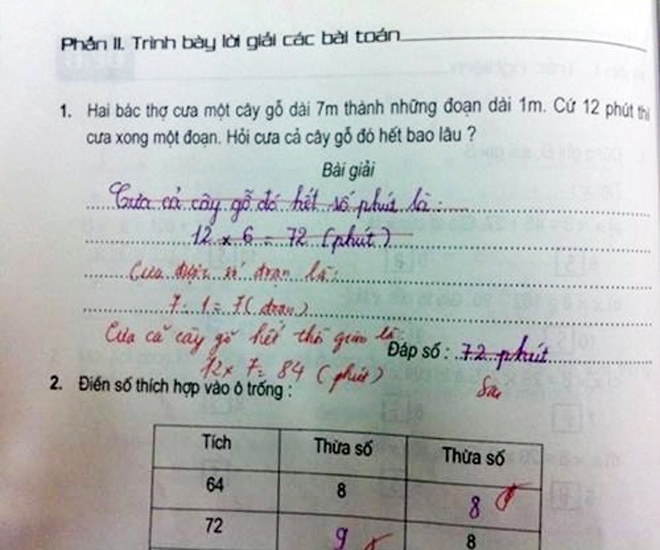 Phần II. Trình bày lời giải các bài toán
1. Hai bác thợ cưa một cây gỗ dài 7m thành những đoạn dài 1m. Cứ 12 phút thì
cưa xong một đoạn. Hỏi cưa cả cây gỗ đó hết bao lâu ?
Bài giải
Cưa cả cây gỗ đó hết số phút là :
12 x 6 = 72 (phút)
Cưa được số đoạn là:
7 : 1 = 7 (đoạn)
Cưa cả cây gỗ hết thời gian là
Đáp số : 72 phút
12 x 7 = 84 (phút)
Sai
2. Điền số thích hợp vào ô trống :
Tích Thừa số Thừa số
64 8 8
72 9 8